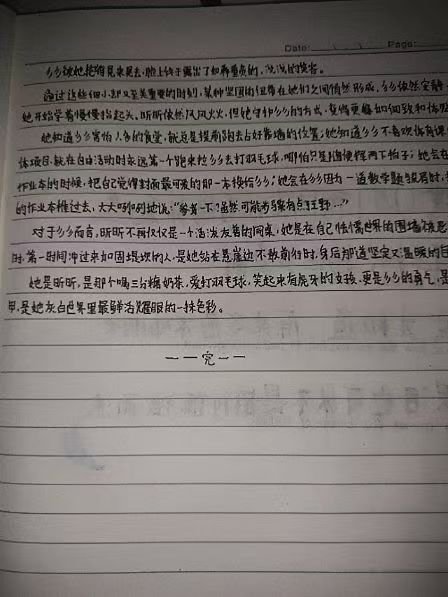 Date: Page:
多多被她拖得晃来晃去,脸上终于露出了如释重负的,浅浅的笑容。
通过这些细小却又至关重要的时刻,某种坚固的纽带在她们之间悄然形成。多多依然安静
她开始学着慢慢抬起头。昕昕依然风风火火,但她守护多多的方式,变得更加细致和体贴
她知道多多害怕人多的食堂,就总是提前跑去占好靠墙的位置;她知道多多不喜欢体育课
体项目,就在自由活动时永远第一个跑来拉多多去打羽毛球,哪怕只是随便挥两下拍子;她会在
作业本的时候,把自己觉得封面最可爱的那一本换给多多;她会在多多因为一道数学题
的作业本推过去,大大咧咧地说:“参考一下?虽然可能步骤有点狂野...”
对于多多而言,昕昕不再仅仅是一个活泼友善的同桌,她是在自己怯懦世界的围墙被
时,第一时间冲过来加固堤坝的人,是她站在悬崖边不敢前行时,身后那道坚定又温暖的
她是昕昕,是那个喝三分糖奶茶,爱打羽毛球,笑起来有虎牙的女孩。更是多多的勇气,是
甲,是她灰白世界里最鲜活耀眼的一抹色彩。
——完——